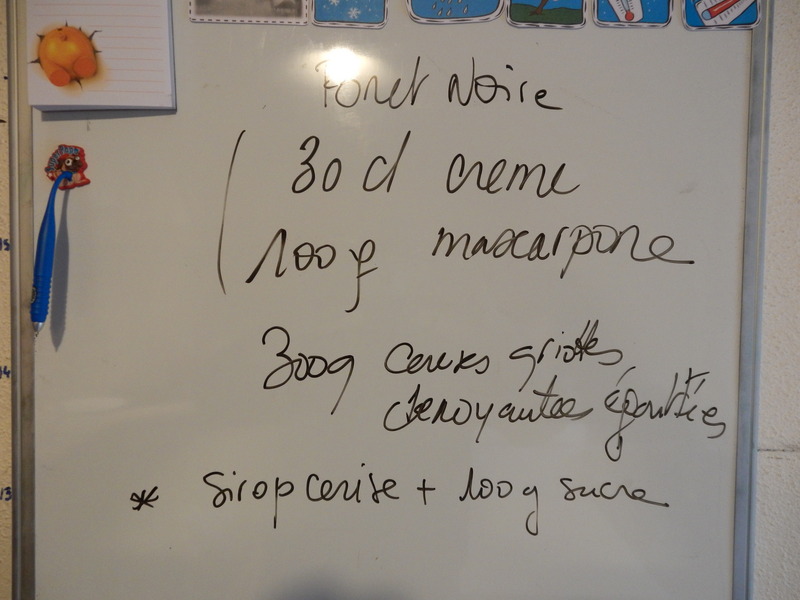 Foret Noire
30 cl creme
100 g mascarpone
300g cerises griottes
denoyautees égouttées
* Sirop cerise + 100 g sucre